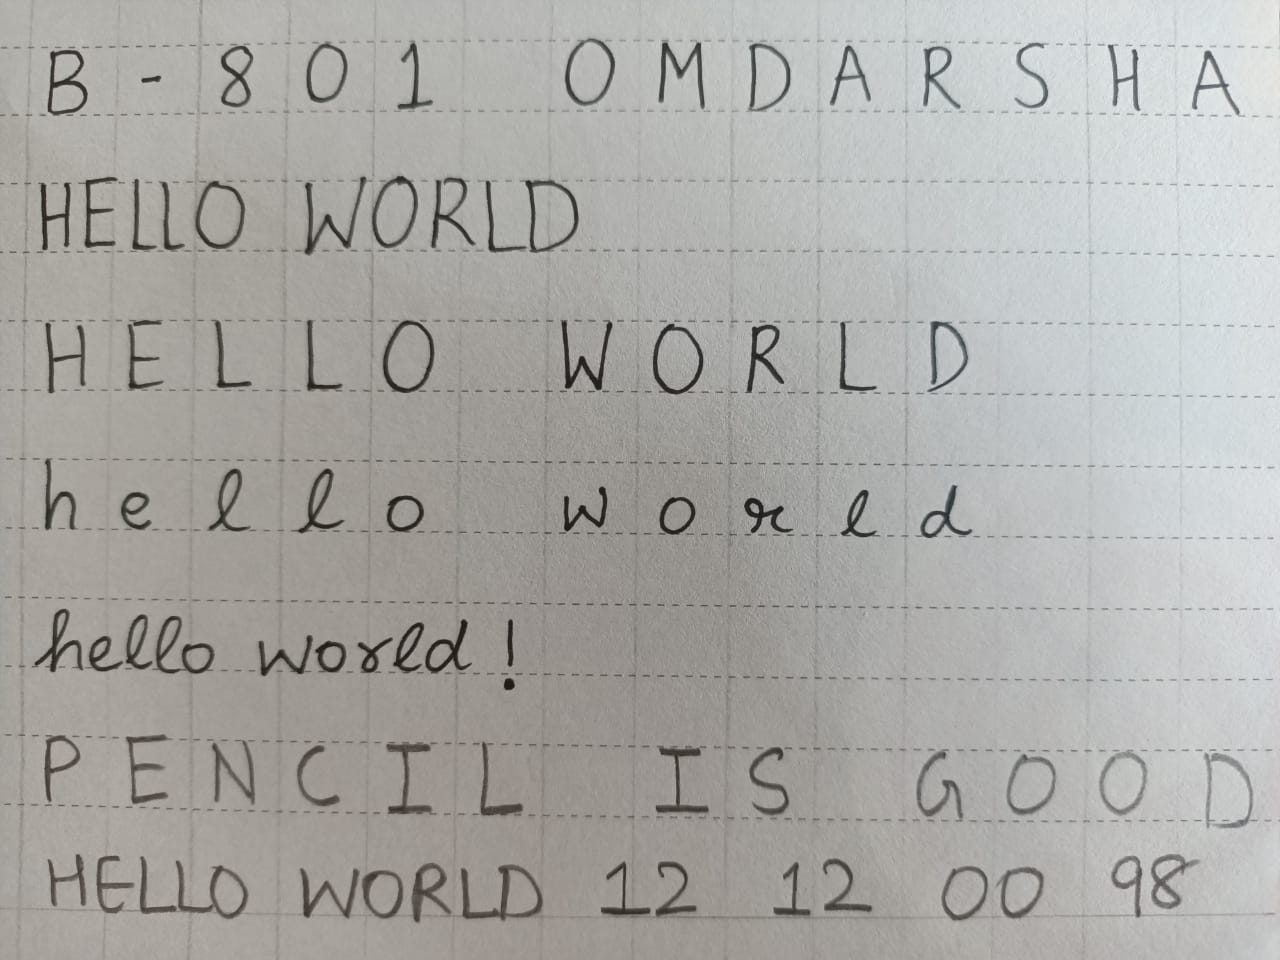 B-801 OMDARSHA
HELLO WORLD
HELLO WORLD
hello world
hello world!
PENCIL IS GOOD
HELLO WORLD 12 12 00 98